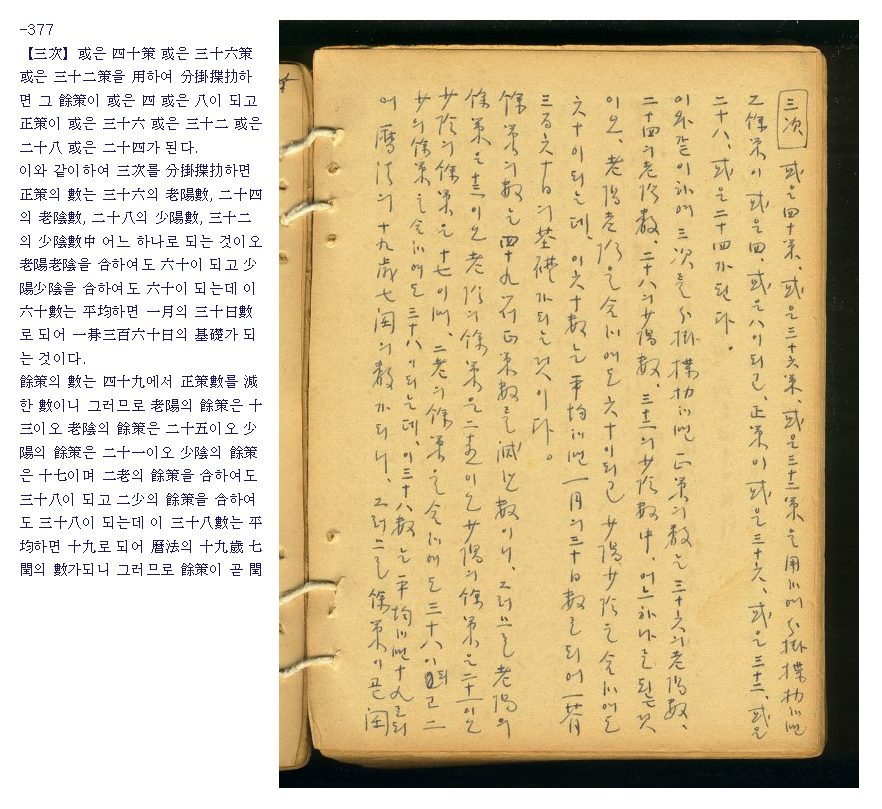 -377
【三次】 或은 四十策 或은 三十六策
或은 三十二策을 用하여 分掛揲扐하
면 그 餘策이 或은 四 或은 八이 되고
正策이 或은 三十六 或은 三十二 或은
二十八 或은 二十四가 된다.
이와 같이하여 三次를 分掛揲扐하면
正策의 數는 三十六의 老陽數, 二十四
의 老陰數, 二十八의 少陽數, 三十二
의 少陰數中 어느 하나로 되는 것이오
老陽老陰을 合하여도 六十이 되고 少
陽少陰을 合하여도 六十이 되는데 이
六十數는 平均하면 一月의 三十日數
로 되어 一朞三百六十日의 基礎가 되
는 것이다.
餘策의 數는 四十九에서 正策數를 減
한 數이니 그러므로 老陽의 餘策은 十
三이오 老陰의 餘策은 二十五이오 少
陽의 餘策은 二十一이오 少陰의 餘策
은 十七이며 二老의 餘策을 合하여도
三十八이 되고 二少의 餘策을 合하여
도 三十八이 되는데 이 三十八數는 平
均하면 十九로 되어 曆法의 十九歲 七
閏의 數가되니 그러므로 餘策이 곧 閏
三次 或은四十策、或은三十六策、或은三十二策을用하여分掛揲扐하면
그餘策이 或은四、或은八이되고、正策이 或은三十六、或은三十二、或은
二十八、或은二十四가된다。
이와같이하여 三次를分掛揲扐하면 正策의數는 三十六의老陽數、
二十四의老陰數、二十八의少陽數、三十二의少陰數中、어느하나로되는것
이오、老陽老陰을合하여도六十이되고 少陽少陰을合하여도
六十이되는데、이六十數는平均하면 一月의三十日數로되어 一朞
三百六十日의基礎가되는것이다。
餘策의數는四十九에서正策數를減한數이니、그러므로老陽의
餘策은十三이오 老陰의餘策은二十五이오 少陽의餘策은二十一이오
少陰의餘策은十七이며、二老의餘策을合하여도三十八이되고 二
少의餘策을合하여도三十八이되는데、이三十八數는平均하면十九로되
어 曆法의十九歲七閏의數가되니、그러므로餘策이곧閏